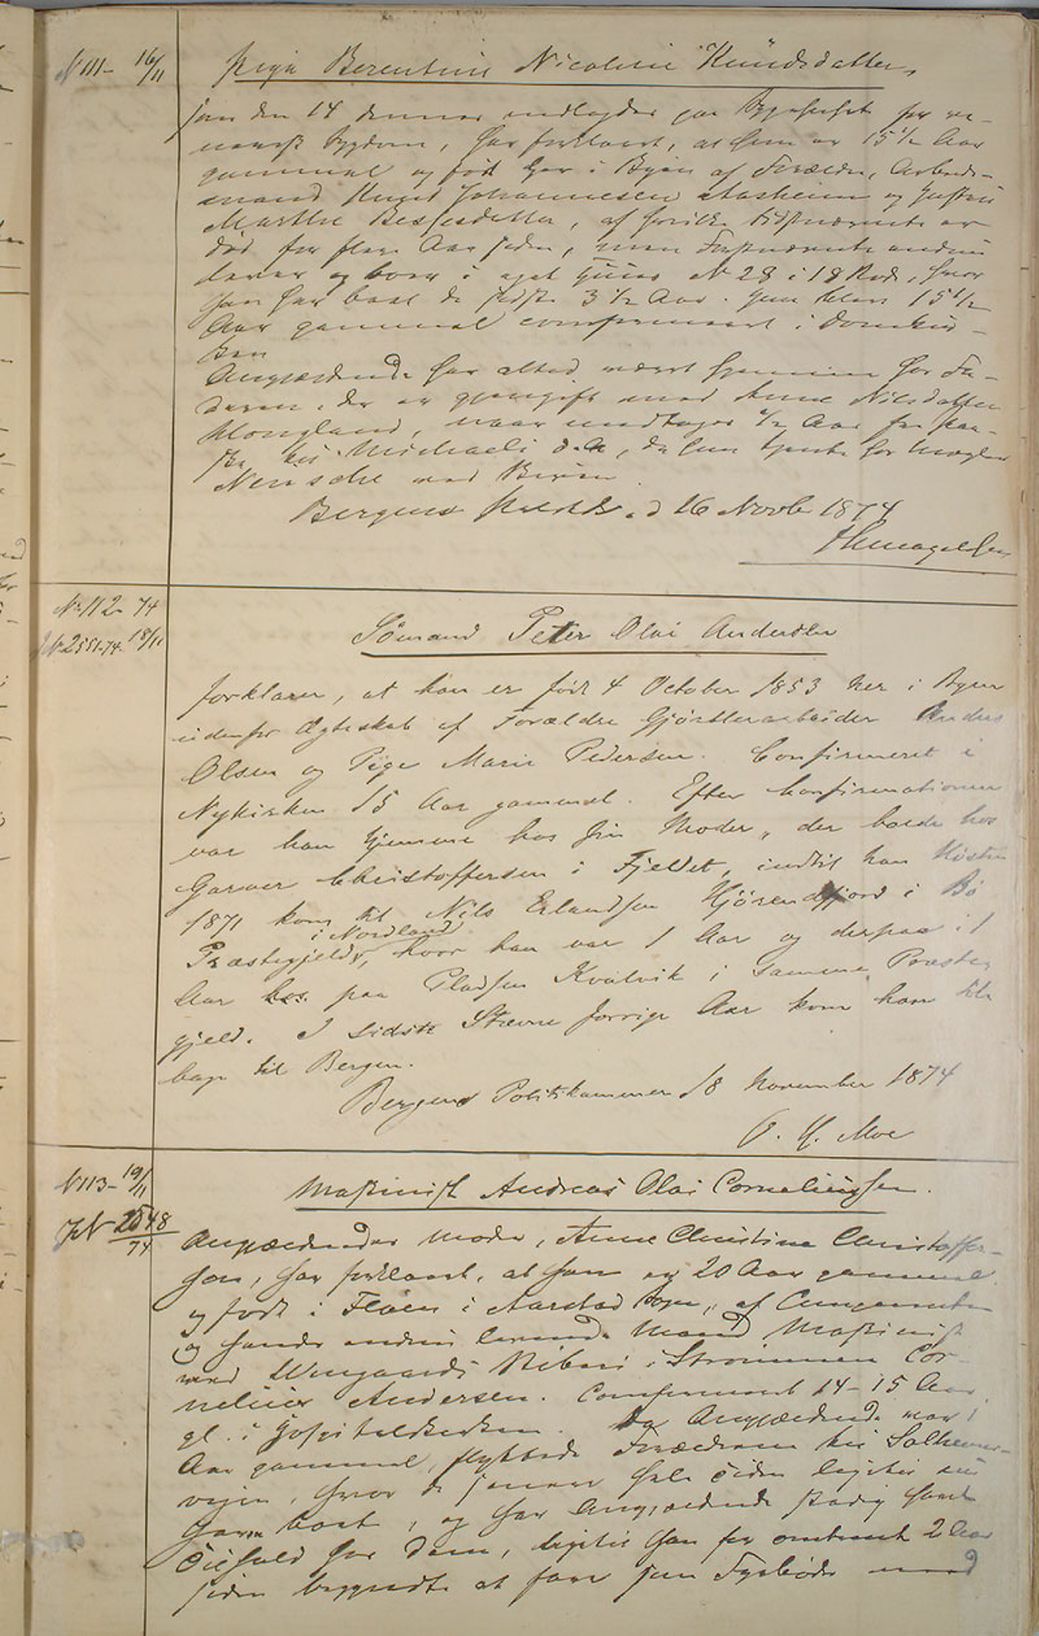 N 111- 16/11
Pige Berentine Nicoline Knudsdatter,
som den 14 dennes indlagdes paa Sygehuset for ve-
nerisk Sygdom, har forklaret, at hun er 15 1/2 Aar
gammel og født her i Byen af Forældre, Arbeids-
mand Knud Johannesen og Hustru
Marthe, af hvilke sidstnævnte er
død for flere Aar siden, men Førstnævnte endnu
lever og boer i eget Huus N 28 i 18 Rode, hvor
han har boet de sidste 3 1/2 Aar. Hun blev 15 1/2
Aar gammel confirmeret i Domkir-
ken
Angjældende har altid været hjemme hos Fa-
deren, der er gjengift med Anne Nilsdatter
, naar undtages 1/2 Aar fra Paa-
ske til Michaeli d. A, da hun tjente hos
ved Byen
Bergens d 16 Novb 1874
N. 112- 74
J N. 2551-74. 18/11
Sømand Peter Olai Andersen
forklarer, at han er født 4 October 1853 her i Byen
udenfor Ægteskab af Forældre Gjørtlerarbeider Anders
Olsen og Pige Marie Pedersen. Confirmeret i
Nykirken 15 Aar gammel. Efter Confirmationen
var han hjemme hos sin Moder, der boede hos
Garver Christoffersen i Fjeldet, indtil han Høsten
1871 kom til Nils Erlandsen Hjörendfjord i Bö
i Nordland
Præstegjeld, hvor han var 1 Aar og derpaa 1
Aar hos paa Pladsen Kvalvik i samme Præste-
gjeld. I sidste Stævne forrige Aar kom han til-
bage til Bergen.
Bergens Politikammer 18 November 1874
O. H. Moe
N 113- 19/11
JN 2548/74
Maskinist Andreas Olai Corneliussen.
Angjældendes Moder, Anne Christine Christoffer-
sen, har forklaret, at han er 20 Aar gammel
og født i Fløen i Aarstad Sogn, af Comparentin
og hendes endnu levende Mand Maskinist
ved Wingaards Reberi i Strømmen Cor-
nelius Andersen. Confirmeret 14-15 Aar
gl. i Hospitalskirken. Da Angjældende var 1
Aar gammel, flyttede Forældrene til Solheims-
veien, hvor de senere hele Tiden ligetil nu
have boet, og har Angjældende stadig havt
Tilhold hos dem, ligetil han for omtrent 2 Aar
siden begyndte at fare som Fyrbøder med